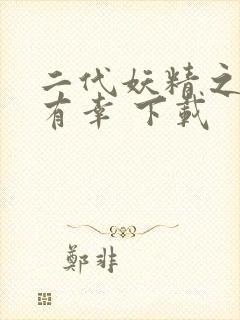 二代妖精之
有幸 下載
鄭非